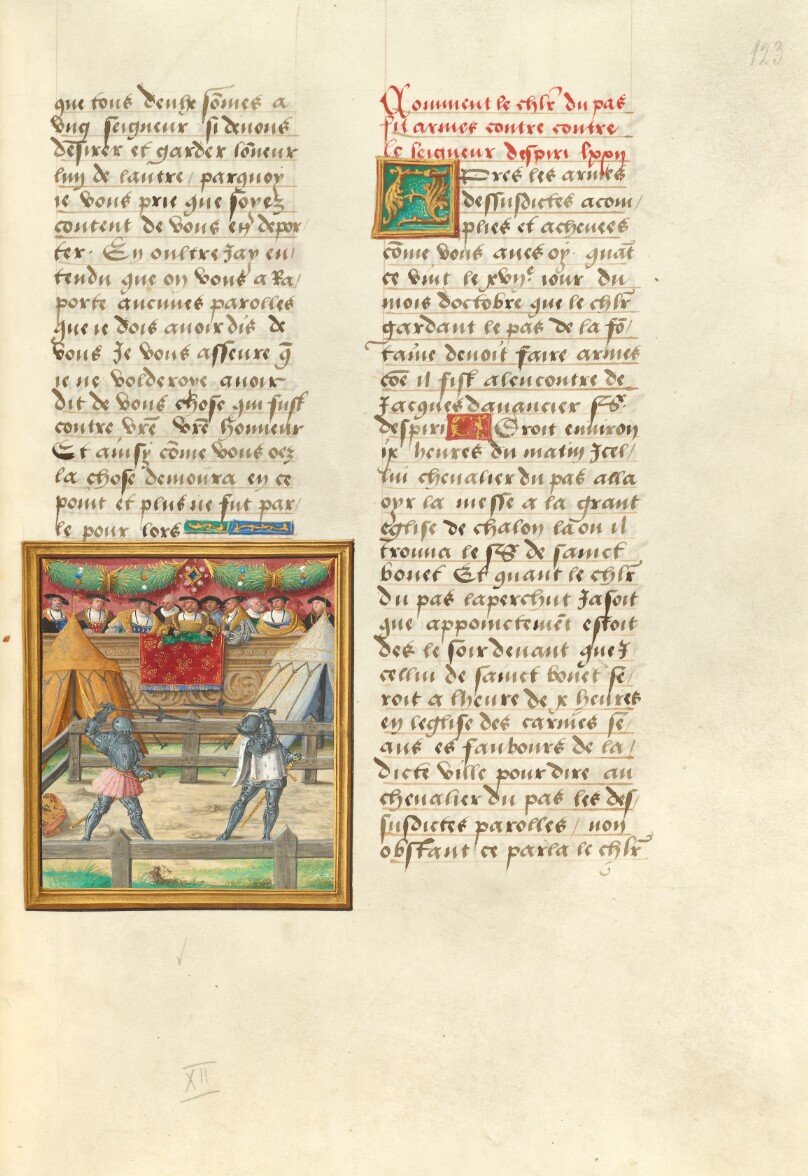 123
que tous deulx sõmes a
vng seigneur si deuons
desirer et garder lõneur
luy de lautre / parquoy
ie vous prie que soyez
content de vous en depor /
ter. En oultre Jay en /
tendu que on vous a Ra /
porte aucunes parolles
que ie dois auoir dis de
vous Je vous asseure q̃
ie ne volderoye auoir
dit de vous chose qui fust
contre vrẽ vrẽ honneur
Et ainsy cõme vous oez
la chose demoura en ce
point et plus ne fut par /
le pour lors
Comment le chlr̃ du pas
fit armes contre contre
le seigneur despiri lxxij
Apres les armes
dessusdictes acom /
plies et acheuees
cõme vous aues oy quãt
ce vint le xvijᵉ iour du
mois doctobre que le chlr̃
gardant le pas de la fõ /
taine deuoit faire armes
cõe il fist alencontre de
Jacques dauancier sgr̃
despiri Droit enuiron
ix heures du matin Jcel /
lui cheualier du pas alla
oyr la messe a la grant
eglise de chalon la ou il
trouua le sgr̃ de sainct
bouet Et quant le chlr̃
du pas laperchut Jasoit
que appoinctemẽt estoit
des le soir deuant que J
cellui de sainct bouet se /
roit a lheure de x heures
en leglise des carmes se /
ans es faubours de la /
dicte ville pour dire au
cheualier du pas les des /
susdictes parolles / non
obstant ce parla le chlr̃
XII